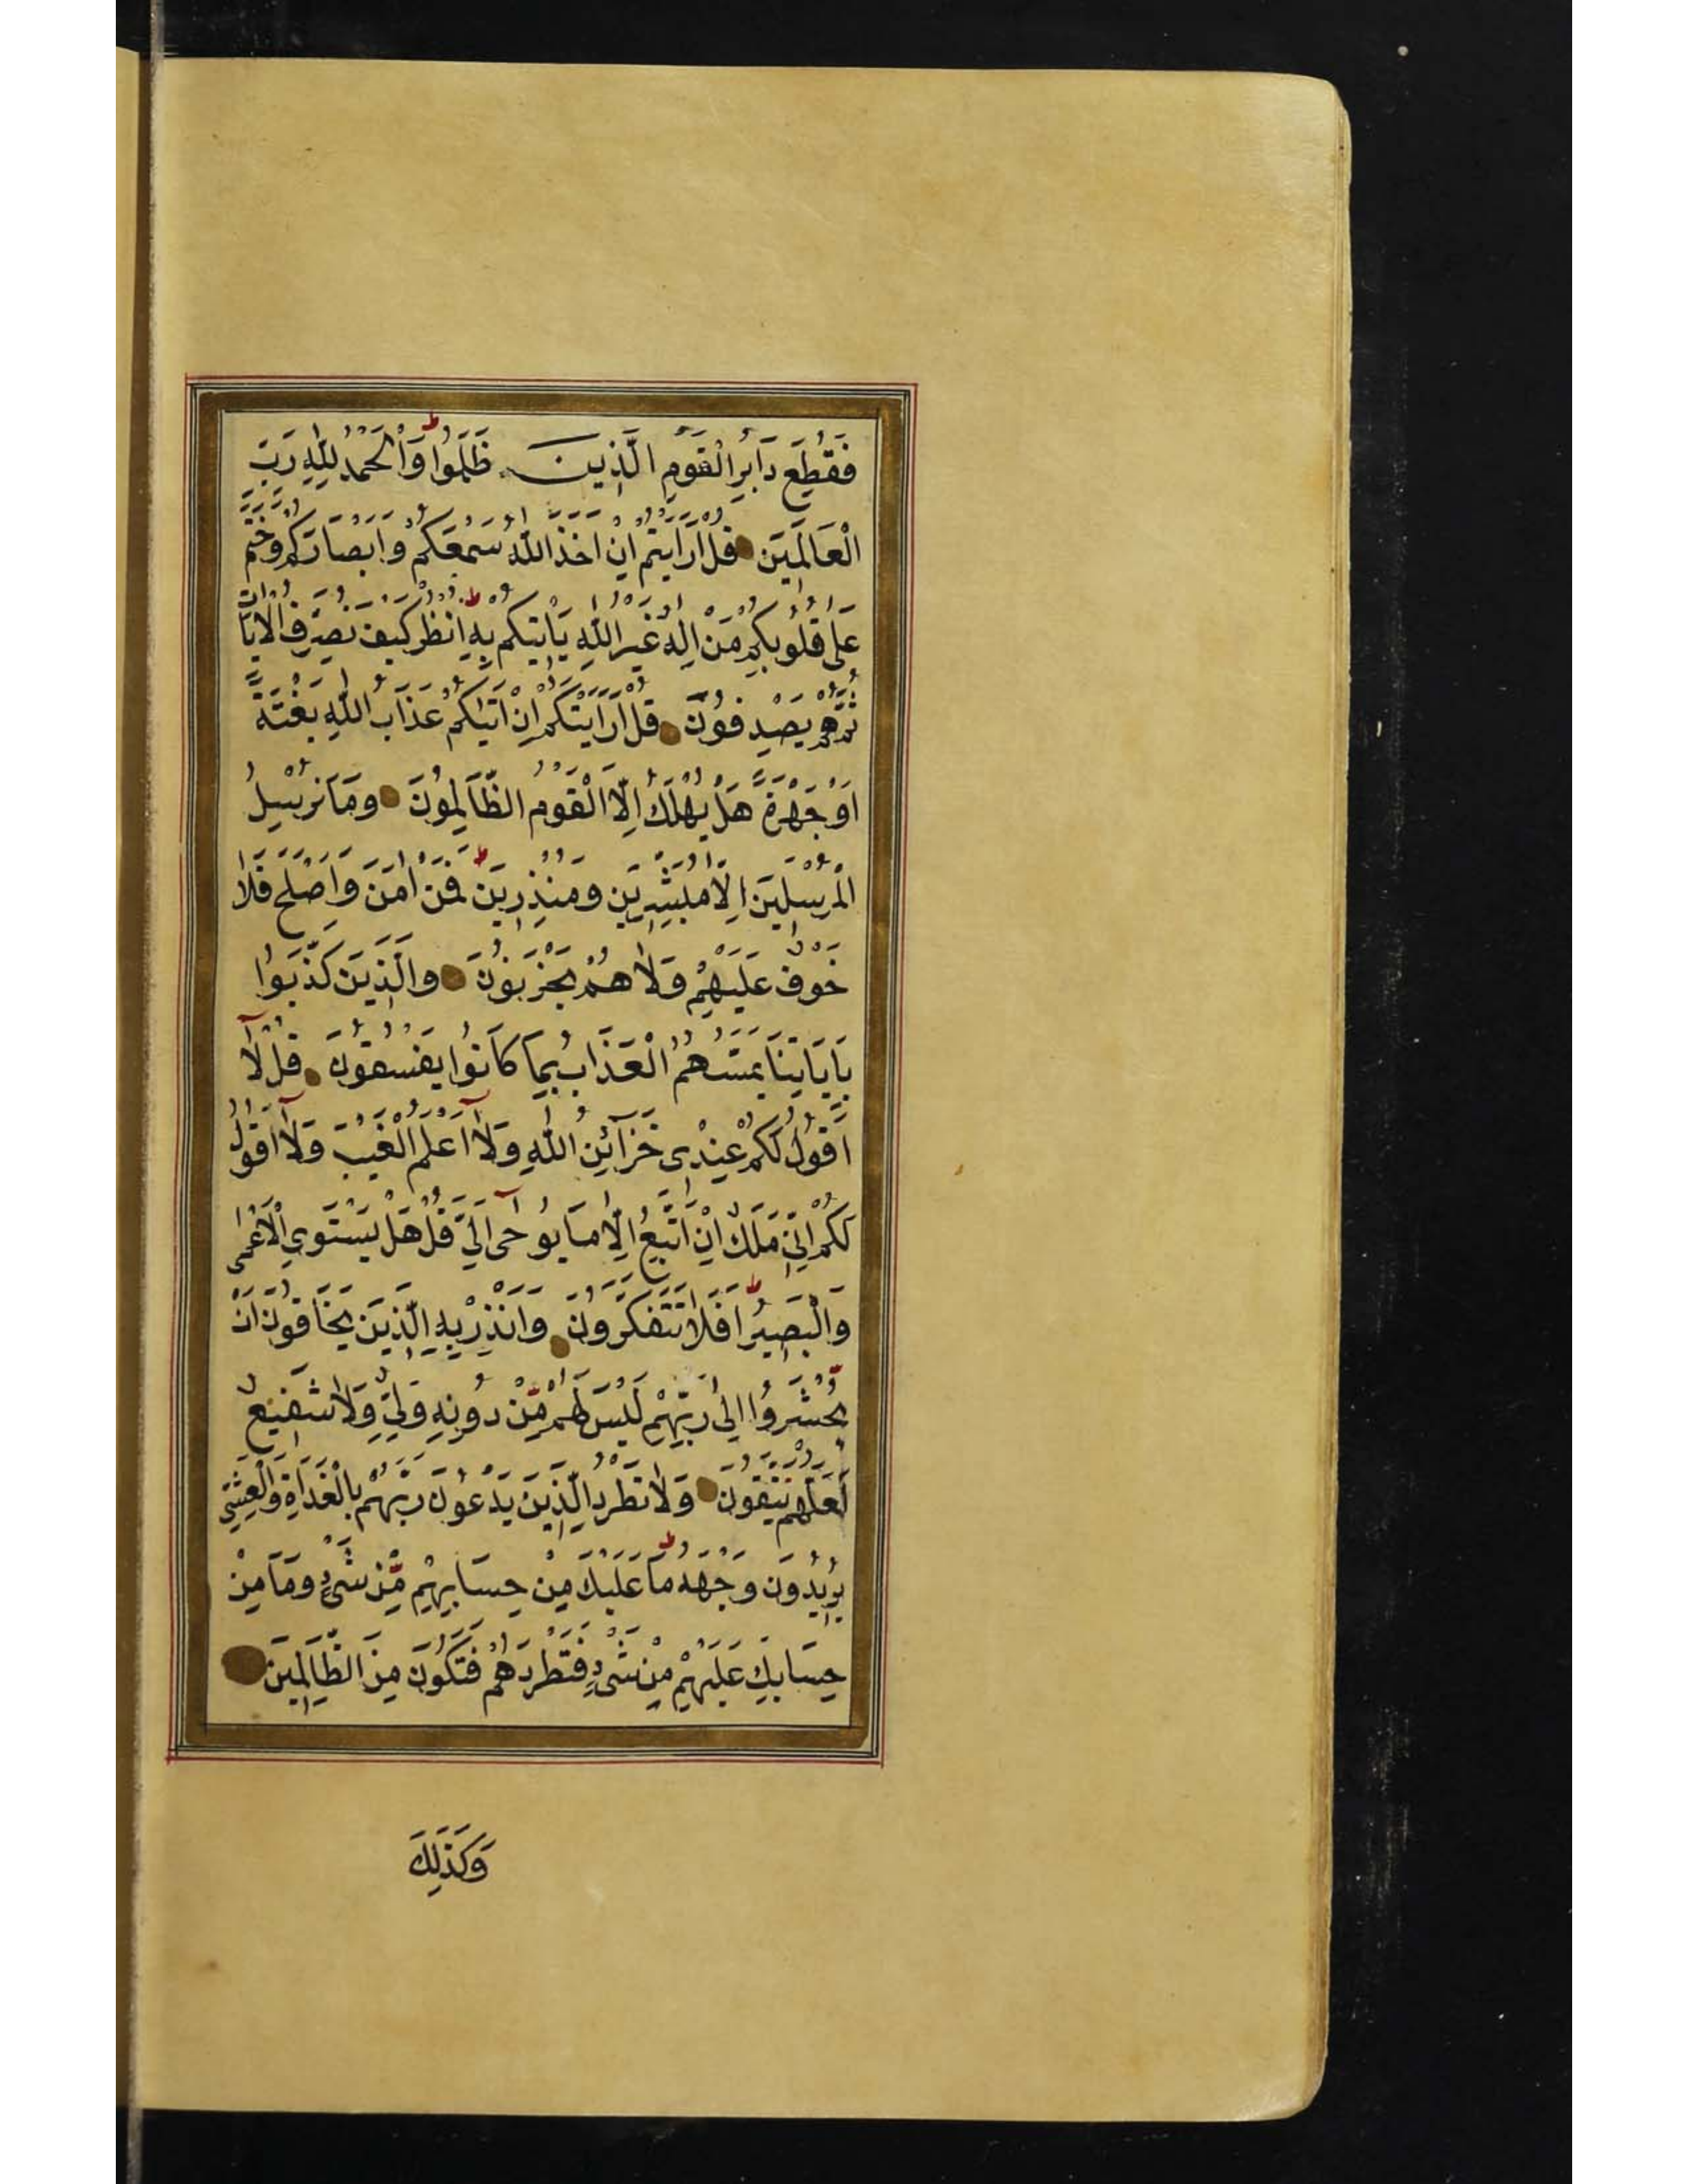 فَقُطِعَ دَابِرُ الْقَوْمِ الَّذِينَ ظَلَمُوا ط وَالْحَمْدُ لِلّٰهِ رَبِّ
الْعَالَمِينَ قُلْ اَرَاَيْتُمْ اِنْ اَخَذَ اللّٰهُ سَمْعَكُمْ وَاَبْصَارَكُمْ وَخَتَمَ
عَلٰى قُلُوبِكُمْ مَنْ اِلٰهٌ غَيْرُ اللّٰهِ يَاْتِيكُمْ بِهِ ط اُنْظُرْ كَيْفَ نُصَرِّفُ الْاٰيَاتِ
ثُمَّ هُمْ يَصْدِفُونَ قُلْ اَرَاَيْتَكُمْ اِنْ اَتٰيكُمْ عَذَابُ اللّٰهِ بَغْتَةً
اَوْ جَهْرَةً هَلْ يُهْلَكُ اِلَّا الْقَوْمُ الظَّالِمُونَ وَمَا نُرْسِلُ
الْمُرْسَلِينَ اِلَّا مُبَشِّرِينَ وَمُنْذِرِينَ ط فَمَنْ اٰمَنَ وَاَصْلَحَ فَلَا
خَوْفٌ عَلَيْهِمْ وَلَا هُمْ يَحْزَنُونَ وَالَّذِينَ كَذَّبُوا
بِاٰيَاتِنَا يَمَسُّهُمُ الْعَذَابُ بِمَا كَانُوا يَفْسُقُونَ قُلْ لَآ
اَقُولُ لَكُمْ عِنْدِى خَزَآئِنُ اللّٰهِ وَلَآ اَعْلَمُ الْغَيْبَ وَلَآ اَقُولُ
لَكُمْ اِنِّى مَلَكٌ اِنْ اَتَّبِعُ اِلَّا مَا يُوحٰىٓ اِلَىَّ قُلْ هَلْ يَسْتَوِى الْاَعْمٰى
وَالْبَصِيرُ ط اَفَلَا تَتَفَكَّرُونَ وَاَنْذِرْ بِهِ الَّذِينَ يَخَافُونَ اَنْ
يُحْشَرُوا اِلٰى رَبِّهِمْ لَيْسَ لَهُمْ مِّنْ دُونِهِ وَلِىٌّ وَلَا شَفِيعٌ
لَعَلَّهُمْ يَتَّقُونَ وَلَا تَطْرُدِ الَّذِينَ يَدْعُونَ رَبَّهُمْ بِالْغَدَاةِ وَالْعَشِىِّ
يُرِيدُونَ وَجْهَهُ ط مَا عَلَيْكَ مِنْ حِسَابِهِمْ مِّنْ شَىْءٍ وَمَا مِنْ
حِسَابِكَ عَلَيْهِمْ مِنْ شَىْءٍ فَتَطْرُدَهُمْ فَتَكُونَ مِنَ الظَّالِمِينَ
وَكَذٰلِكَ